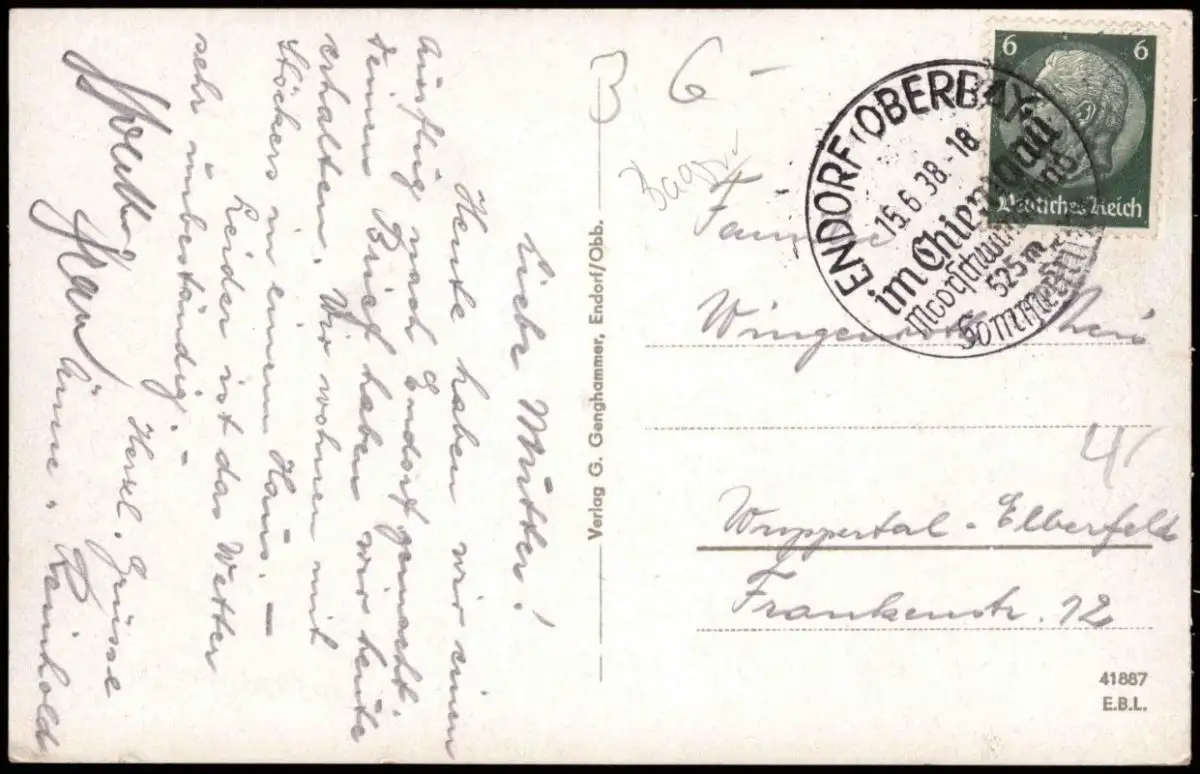 Liebe Mutter!
Heute haben wir einen
Ausflug nach Endorf gemacht.
Deinen Brief haben wir heute
erhalten. Wir wohnen mit
Stöckers in einem Haus. –
Leider ist das Wetter
sehr unbeständig. –
Herzl. Grüsse
Änne. Reinhold
Verlag G. Genghammer, Endorf/Obb.
6 –
6 6
Deutsches Reich
ENDORF (OBERBAY.)
15.6.38.-18
im Chiemgau
525 m
Familie
Wuppertal-Elberfeld
Frankenstr. 12
41887
E.B.L.